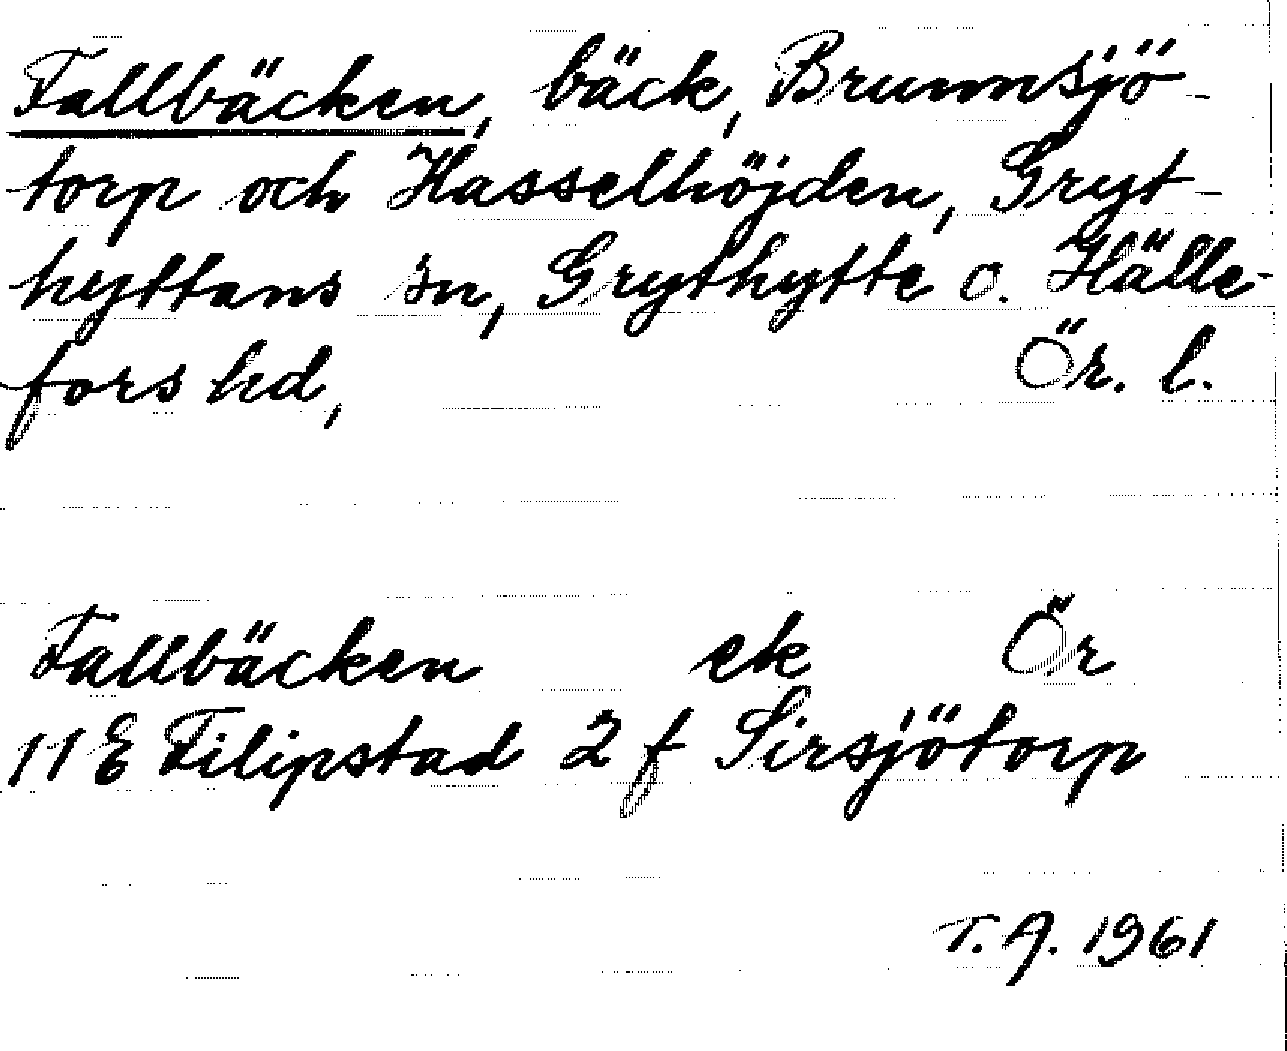 Fallbäcken, bäck, Brunnsjö-
torp och Hasselhöjden, Gryt-
hyttans sn, Grythytte o. Hälle-
fors hd, Ör. l.
Fallbäcken ek Ör
11E Filipstad 2 f Sirsjötorp
T. A. 1961